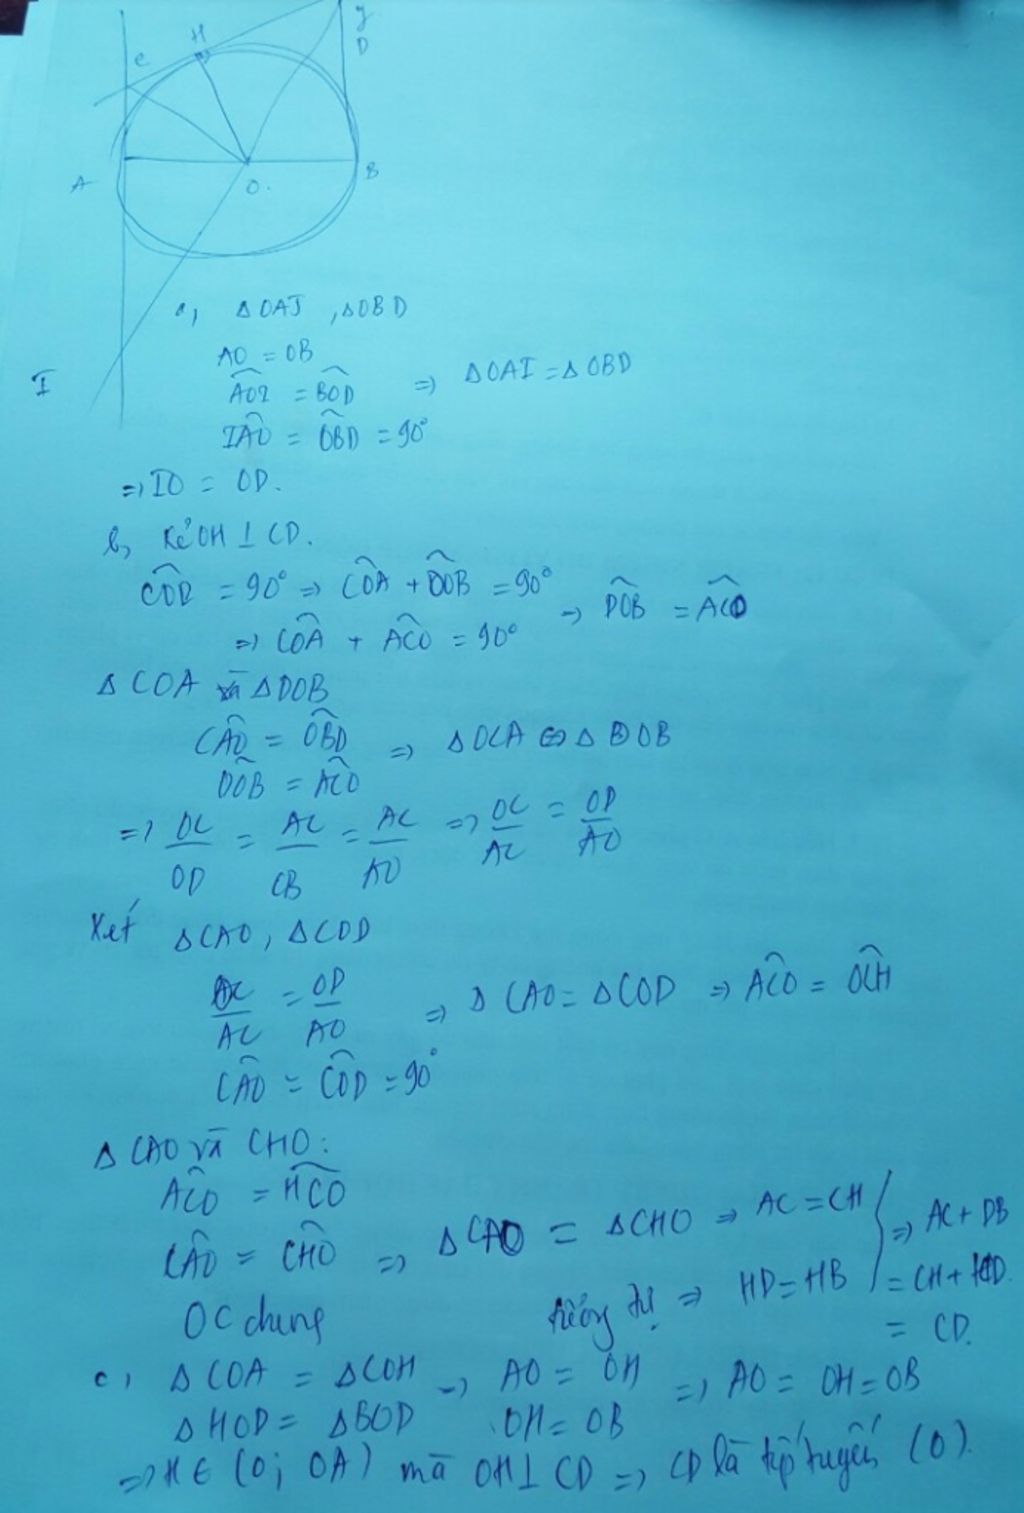 y
H
D
C
A
O.
B
I
a, ΔOAI, ΔOBD
AO = OB
AOI = BOD ⇒ ΔOAI = ΔOBD
IAO = OBD = 90°
⇒ IO = OD.
b, Kẻ OH ⊥ CD.
COD = 90° ⇒ COA + DOB = 90°
⇒ DOB = ACO
⇒ COA + ACO = 90°
Δ COA và ΔDOB
CAO = OBD ⇒ ΔOCA ∽ Δ DOB
DOB = ACO
⇒ OC/OD = AC/CB = AC/AO ⇒ OC/AC = OD/AO
Xét ΔCAO, ΔCOD
OC/AC = OD/AO ⇒ Δ CAO = ΔCOD ⇒ ACO = OCH
CAO = COD = 90°
Δ CAO và CHO:
ACO = HCO
CAO = CHO ⇒ ΔCAO = ΔCHO ⇒ AC = CH ⇒ AC + DB
OC chung
tương tự ⇒ HD = HB = CH + HD.
= CD.
c, Δ COA = ΔCOH ⇒ AO = OH ⇒ AO = OH = OB
Δ HOD = ΔBOD OH = OB
⇒ H ∈ (O; OA) mà OH ⊥ CD ⇒ CD là tiếp tuyến (O).